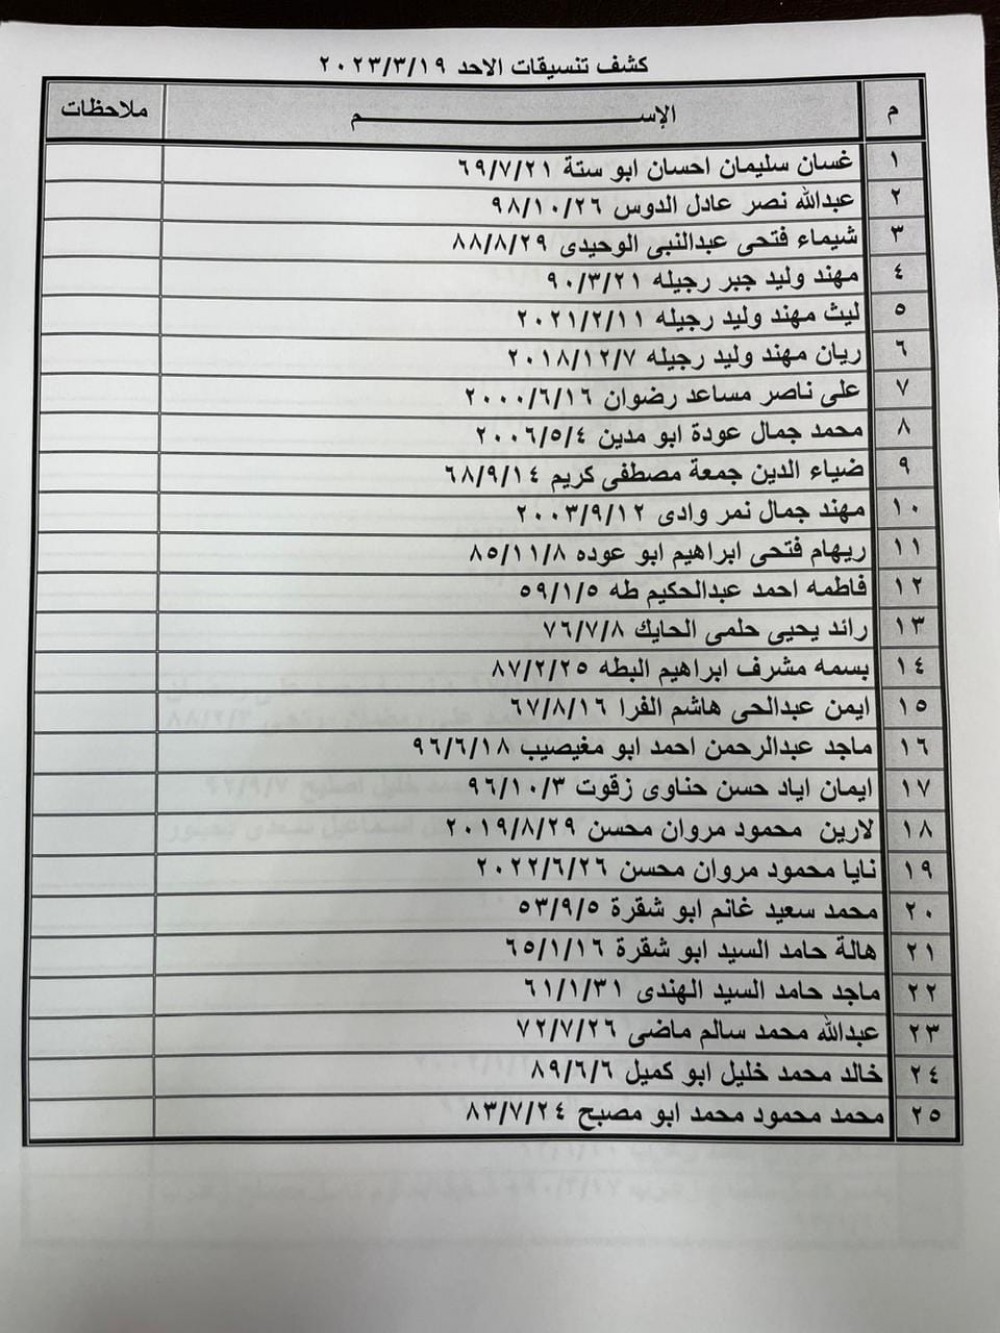 كشف تنسيقات الاحد ٢٠٢٣/٣/١٩
م الإســـــــــــــــــــم ملاحظات
١ غسان سليمان احسان ابو ستة ٦٩/٧/٢١
٢ عبدالله نصر عادل الدوس ٩٨/١٠/٢٦
٣ شيماء فتحى عبدالنبى الوحيدى ٨٨/٨/٢٩
٤ مهند وليد جبر رجيله ٩٠/٣/٢١
٥ ليث مهند وليد رجيله ٢٠٢١/٢/١١
٦ ريان مهند وليد رجيله ٢٠١٨/١٢/٧
٧ على ناصر مساعد رضوان ٢٠٠٠/٦/١٦
٨ محمد جمال عودة ابو مدين ٢٠٠٦/٥/٤
٩ ضياء الدين جمعة مصطفى كريم ٦٨/٩/١٤
١٠ مهند جمال نمر وادى ٢٠٠٣/٩/١٢
١١ ريهام فتحى ابراهيم ابو عوده ٨٥/١١/٨
١٢ فاطمه احمد عبدالحكيم طه ٥٩/١/٥
١٣ رائد يحيى حلمى الحايك ٧٦/٧/٨
١٤ بسمه مشرف ابراهيم البطه ٨٧/٢/٢٥
١٥ ايمن عبدالحى هاشم الفرا ٦٧/٨/١٦
١٦ ماجد عبدالرحمن احمد ابو مغيصيب ٩٦/٦/١٨
١٧ ايمان اياد حسن حناوى زقوت ٩٦/١٠/٣
١٨ لارين محمود مروان محسن ٢٠١٩/٨/٢٩
١٩ نايا محمود مروان محسن ٢٠٢٢/٦/٢٦
٢٠ محمد سعيد غانم ابو شقرة ٥٣/٩/٥
٢١ هالة حامد السيد ابو شقرة ٦٥/١/١٦
٢٢ ماجد حامد السيد الهندى ٦١/١/٣١
٢٣ عبدالله محمد سالم ماضى ٧٢/٧/٢٦
٢٤ خالد محمد خليل ابو كميل ٨٩/٦/٦
٢٥ محمد محمود محمد ابو مصبح ٨٣/٧/٢٤